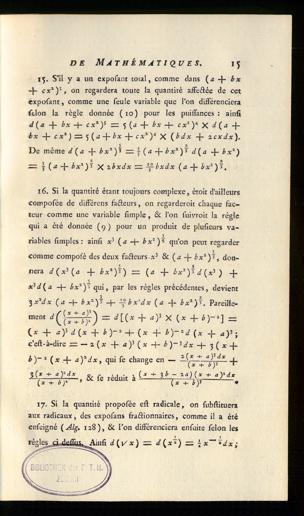 DE MATHÉMATIQUES. 15
15. S'il y a un exposant total, comme dans (a + bx
+ cx²)⁵, on regardera toute la quantité affectée de cet
exposant, comme une seule variable que l'on différenciera
selon la règle donnée (10) pour les puissances : ainsi
d(a + bx + cx²)⁵ = 5(a + bx + cx²)⁴ × d(a +
bx + cx²) = 5(a + bx + cx²)⁴ × (bdx + 2cxdx).
De même
16. Si la quantité étant toujours complexe, étoit d'ailleurs
composée de différens facteurs, on regarderoit chaque fac-
teur comme une variable simple, & l'on suivroit la règle
qui a été donnée (9) pour un produit de plusieurs va-
riables simples : ainsi x³ (a + bx²) qu'on peut regarder
comme composé des deux facteurs x³ & (a + bx²), don-
nera
qui, par les règles précédentes, devient
Pareille-
ment d((x + a)³/(x + b)²) = d[(x + a)³ × (x + b)⁻²] =
(x + a)³ d(x + b)⁻² + (x + b)⁻² d(x + a)³ ;
c'est-à-dire = − 2(x + a)³ (x + b)⁻³dx + 3(x +
b)⁻² (x + a)²dx, qui se change en − 2(x + a)³dx/(x + b)³ +
3(x + a)²dx/(x + b)², & se réduit à (x + 3b − 2a)(x + a)²dx/(x + b)³.
17. Si la quantité proposée est radicale, on substituera
aux radicaux, des exposans fractionnaires, comme il a été
enseigné (Alg. 128), & l'on différenciera ensuite selon les
règles ci dessus. Ainsi d(√x) = d(x^½) = ½x^−½dx ;
BIBLIOTHEK der E. T. H.
ZÜRICH